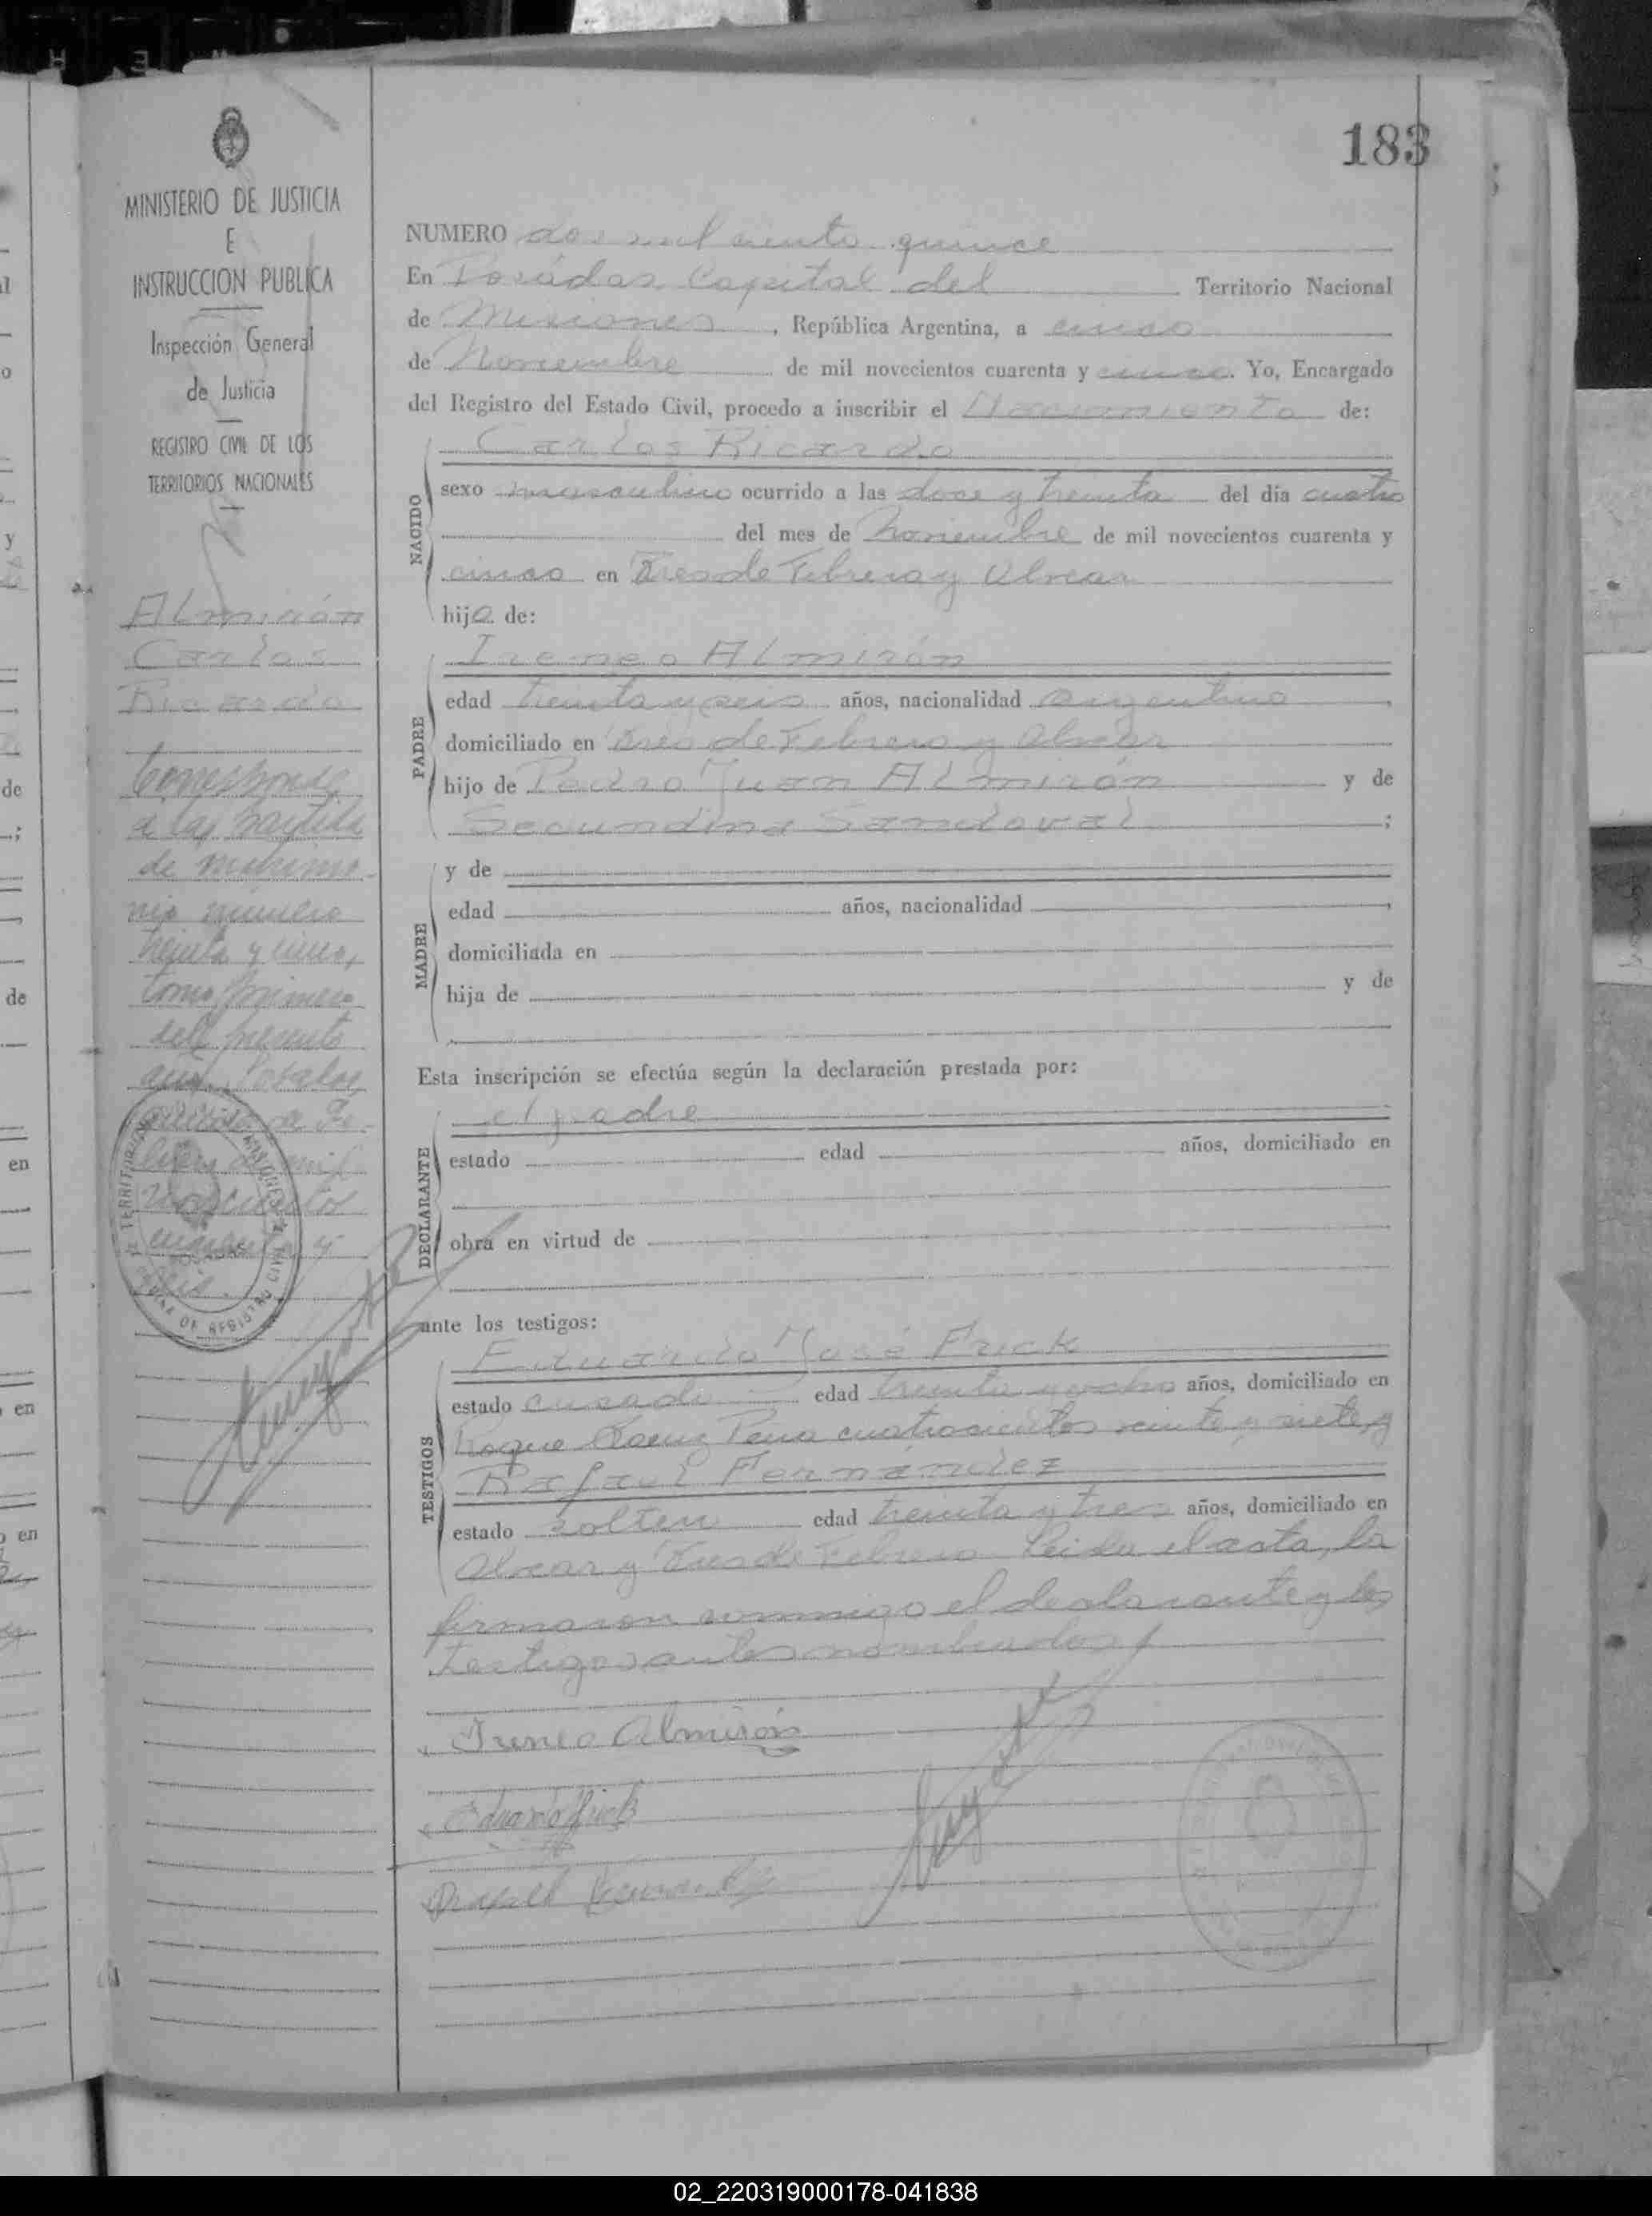 183
MINISTERIO DE JUSTICIA
E
INSTRUCCION PUBLICA
Inspección General
de Justicia
REGISTRO CIVIL DE LOS
TERRITORIOS NACIONALES
Almirón
Carlos
Ricardo
Corresponde
a la partida
de matrimo-
nio número
treinta y cinco,
tomo primero
del presente
año. Posadas,
de Fe-
brero de mil
novecientos
cuarenta y
seis.
NUMERO dos mil ciento quince
En Posadas Capital del Territorio Nacional
de Misiones, República Argentina, a cinco
de Noviembre de mil novecientos cuarenta y cinco. Yo, Encargado
del Registro del Estado Civil, procedo a inscribir el Nacimiento de:
NACIDO
Carlos Ricardo
sexo masculino ocurrido a las doce y treinta del día cuatro
del mes de Noviembre de mil novecientos cuarenta y
cinco en Tres de Febrero y Alvear
hijo de:
PADRE
Ireneo Almirón
edad treinta y seis años, nacionalidad argentino,
domiciliado en Tres de Febrero y Alvear
hijo de Pedro Juan Almirón y de
Secundina Sandoval;
MADRE
y de
edad años, nacionalidad,
domiciliada en
hija de y de
Esta inscripción se efectúa según la declaración prestada por:
DECLARANTE
el padre
estado edad años, domiciliado en
obra en virtud de
ante los testigos:
TESTIGOS
Eduardo José Frick
estado casado edad treinta y ocho años, domiciliado en
Roque Saenz Peña cuatrocientos veinte y siete y
Rafael Fernández
estado soltero edad treinta y tres años, domiciliado en
Alvear y Tres de Febrero. Leída el acta, la
firmaron conmigo el declarante y los
testigos antes nombrados
Ireneo Almirón
Eduardo J Frick
Rafael Fernández
02_220319000178-041838